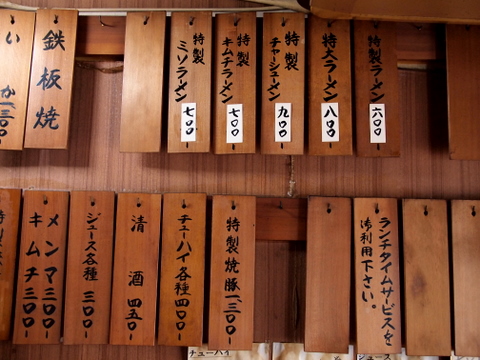 特製ラーメン 六〇〇
特大ラーメン 八〇〇
特製チャーシューメン 九〇〇
特製キムチラーメン 七〇〇
特製ミソラーメン 七〇〇
鉄板焼
い
か一三〇〇
ランチタイムサービスを
御利用下さい。
特製焼豚一、三〇〇
チューハイ各種四〇〇
清酒 四五〇
ジュース各種 三〇〇
メンマ三〇〇
キムチ三〇〇
特製
チューハイ